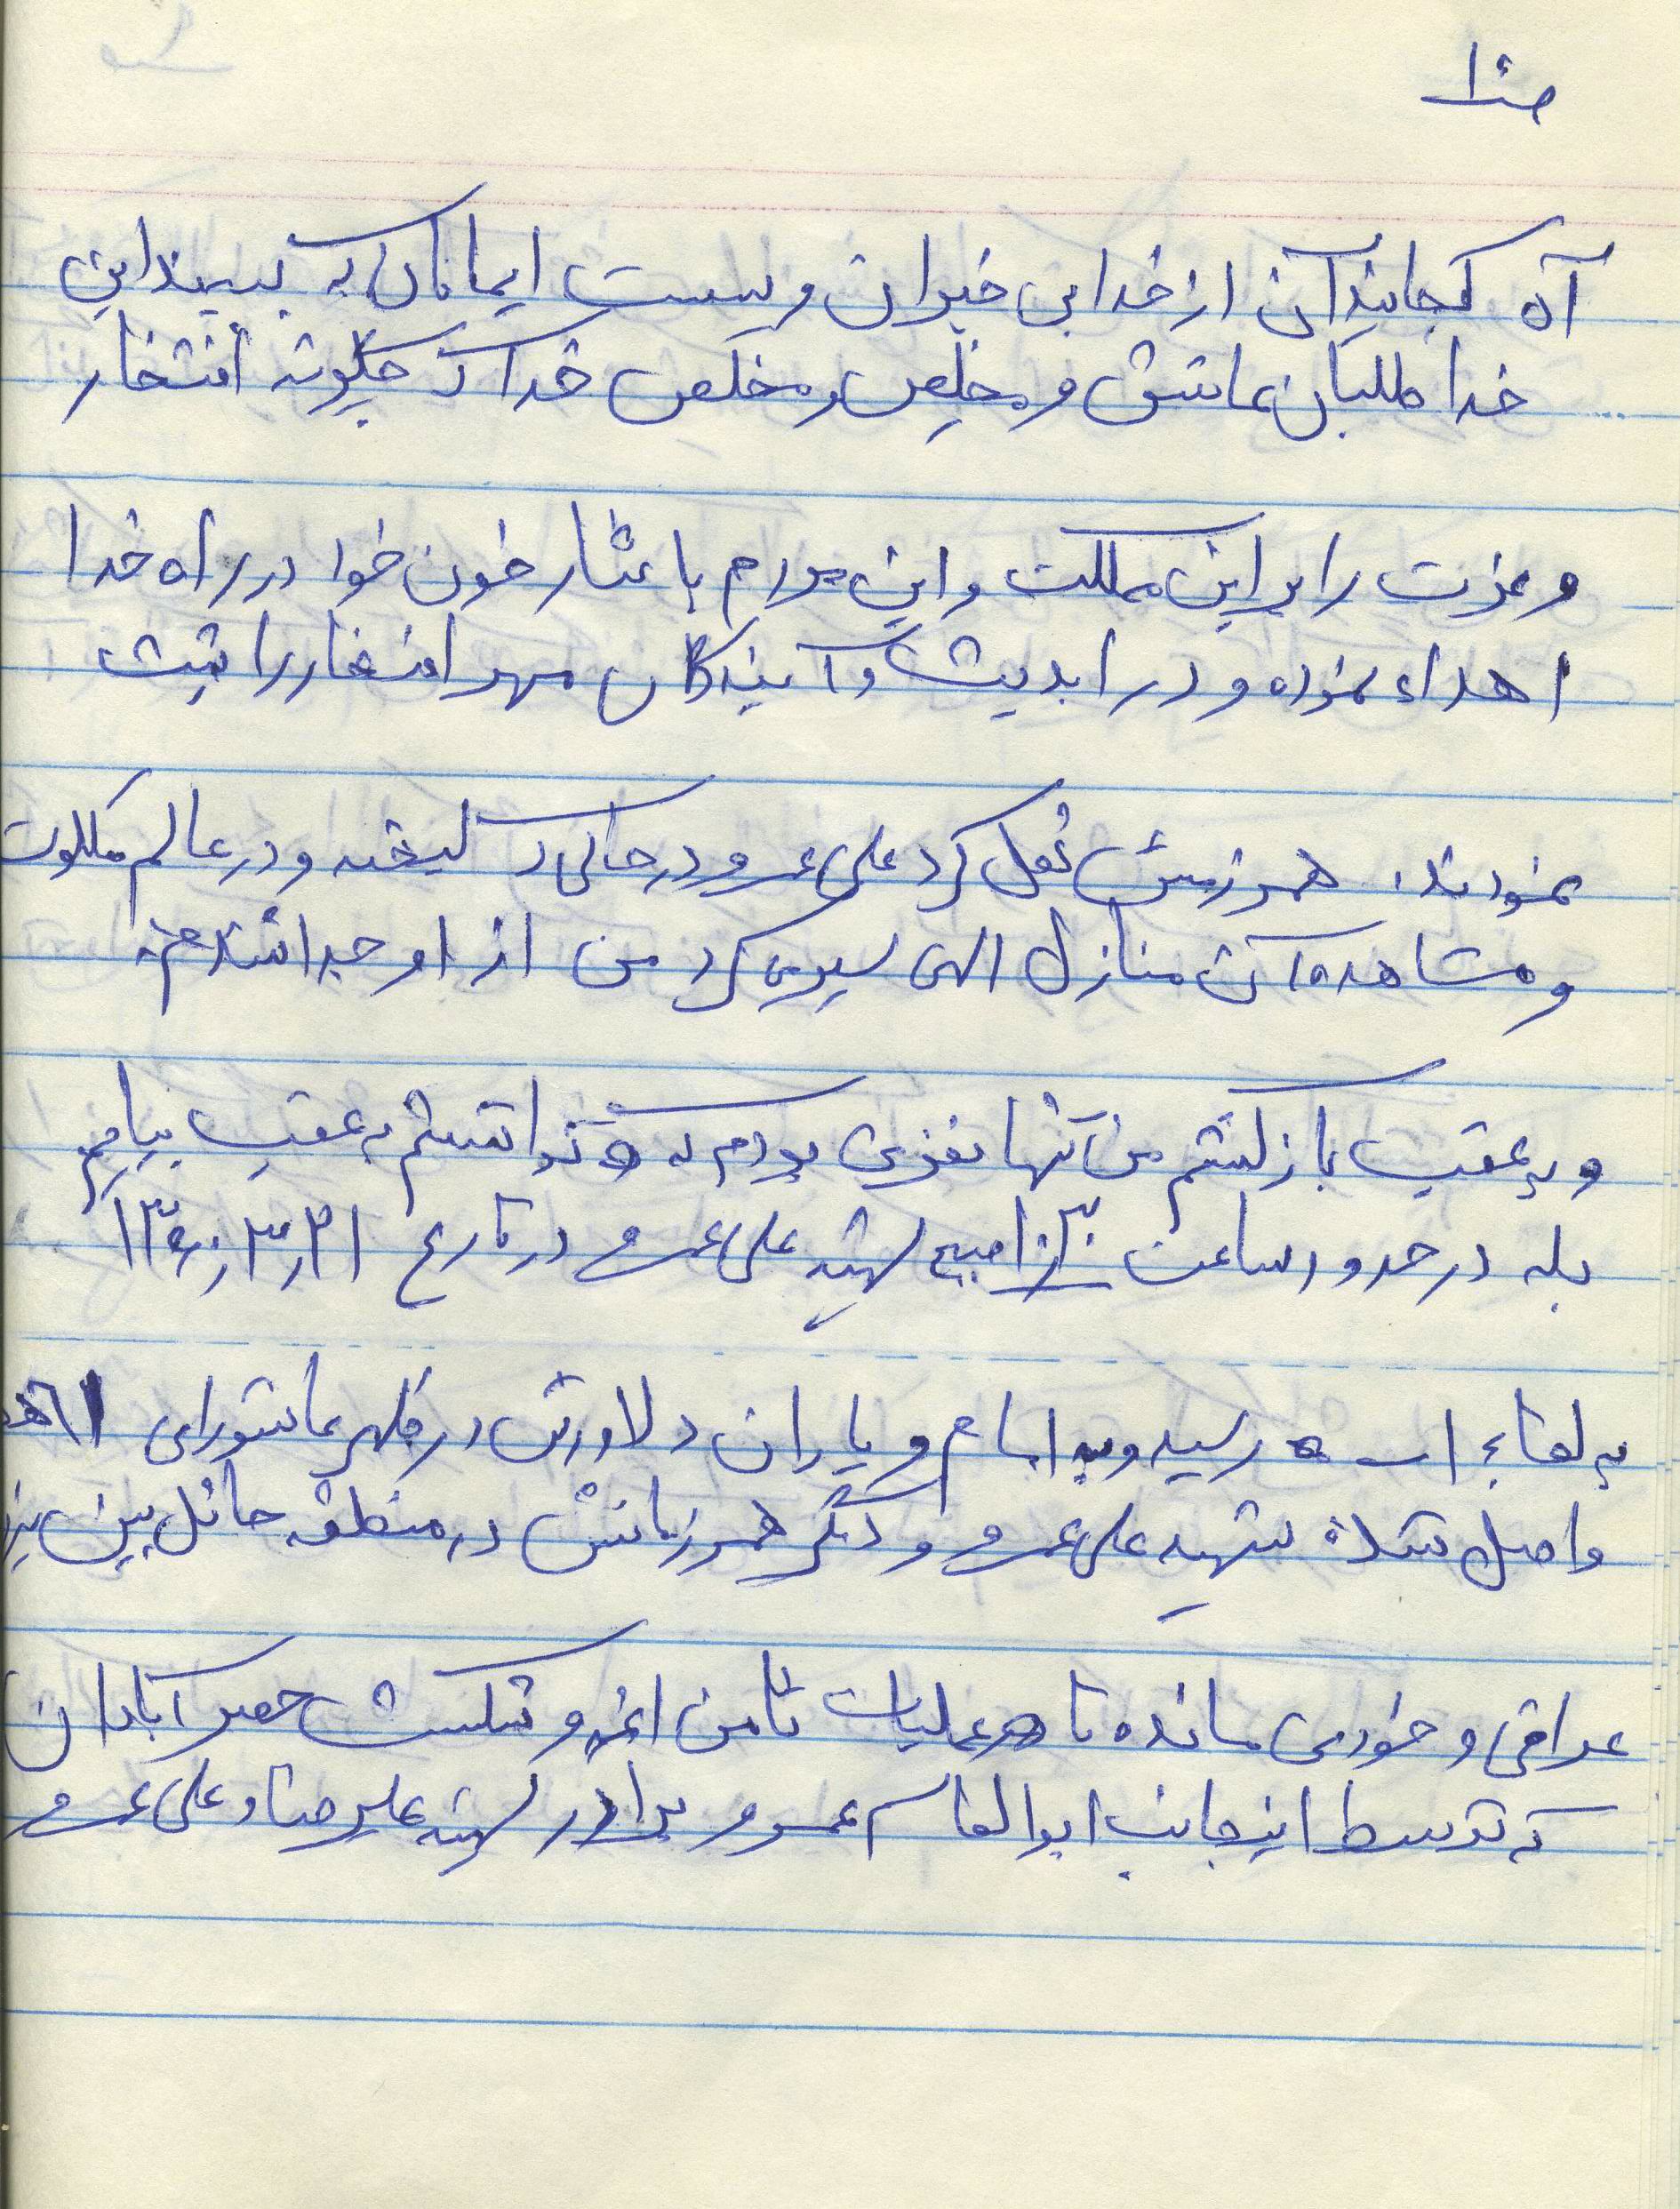 ص ۱۰
آه کجایند آن از خدا بی خبران و سست ایمانان که ببینند این
خدا طلبان عاشق و مخلِص و مخلَص خدا که چگونه افتخار
و عزت را برای این مملکت و این مردم با نثار خون خود در راه خدا
اهداء نموده و در ابدیت و آیندگان مهر افتخار را ثبت
نمودند. همرزمش نقل کرد علی عرو در حالی که لبخند و در عالم ملکوت
و مشاهده آن منازل الهی سیر می کرد من از او جدا شدم
و به عقب بازگشتم من تنها نفری بودم که توانستم به عقب بیایم
بله در حدود ساعت ۱۰/۳۰ صبح شهید علی عرو در تاریخ ۱۳۶۰٫۳٫۳۱
به لقاء ا... رسید و به امام و یاران دلاورش در ظهر عاشورای ۶۱ هـ
واصل شد. شهید علی عرو و دیگر همرزمانش در منطقه حائل بین نیروهای
عراقی و خودی مانده تا عملیات ثامن ائمه و شکست حصر آبادان
که توسط اینجانب ابوالقاسم عرو برادر شهید علیرضا و علی عرو